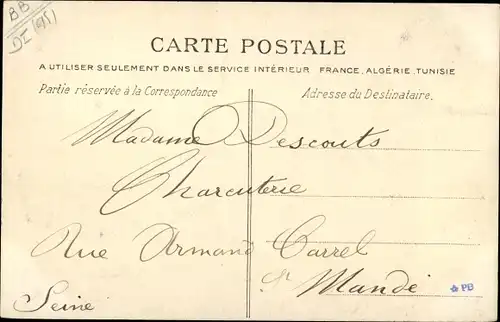 BB
DI (95)
CARTE POSTALE
A UTILISER SEULEMENT DANS LE SERVICE INTÉRIEUR FRANCE, ALGÉRIE, TUNISIE
Partie réservée à la Correspondance
Adresse du Destinataire.
Madame Descouts
Charcuterie
Rue Armand Carrel
St Mandé
Seine
PB